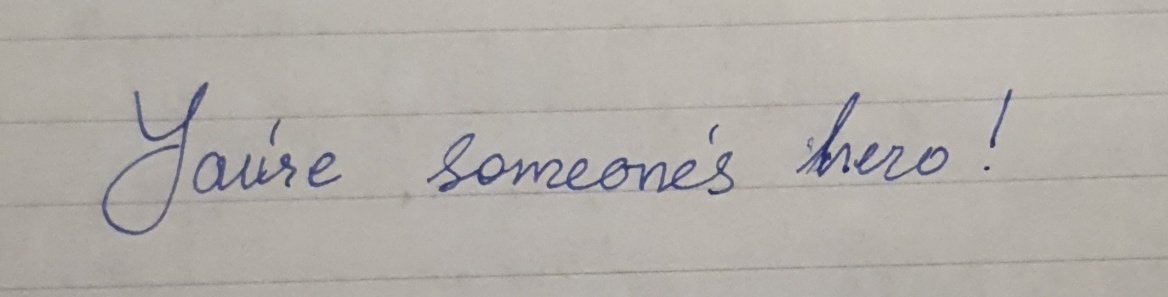 You're someone's hero!